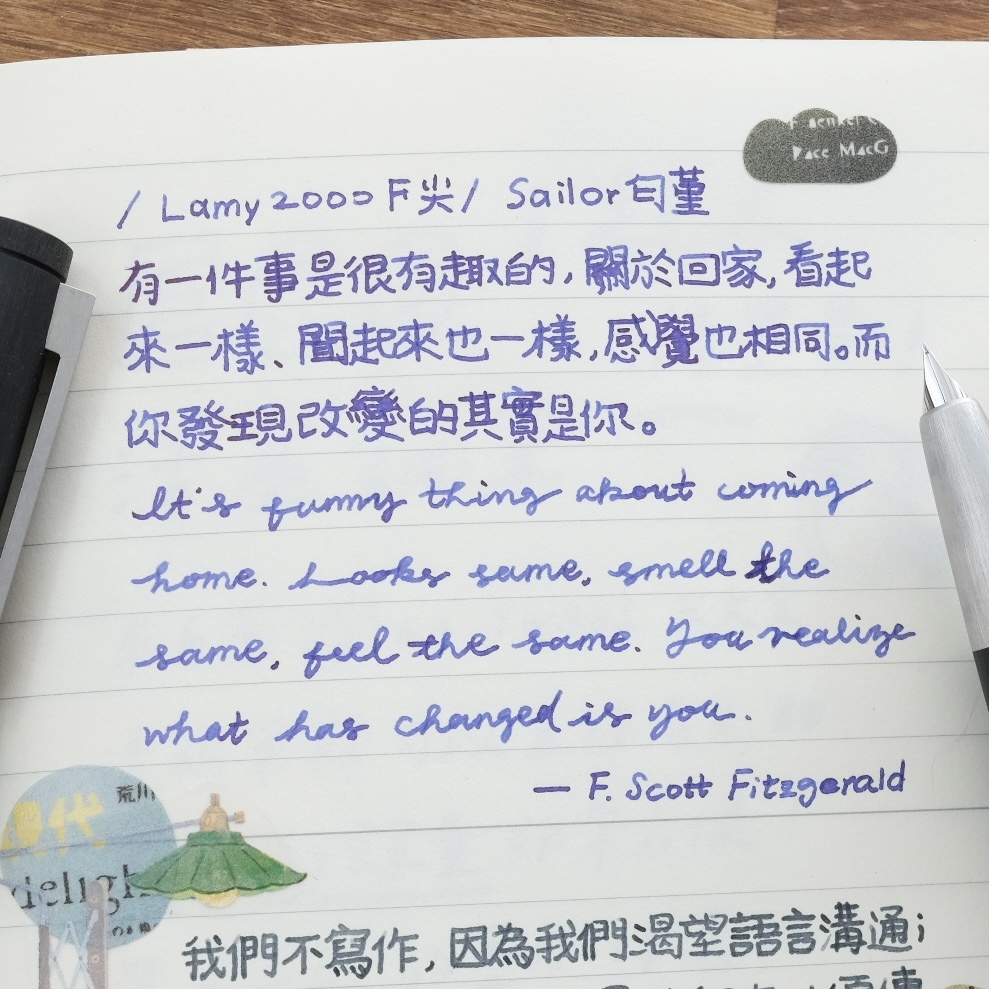 Pace MacG
/ Lamy 2000 F尖 / Sailor 匂菫
有一件事是很有趣的,關於回家,看起
來一樣、聞起來也一樣,感覺也相同。而
你發現改變的其實是你。
It's funny thing about coming
home. Looks same, smell the
same, feel the same. You realize
what has changed is you.
— F. Scott Fitzgerald
荒川
代
deligh
我們不寫作,因為我們渴望語言溝通;